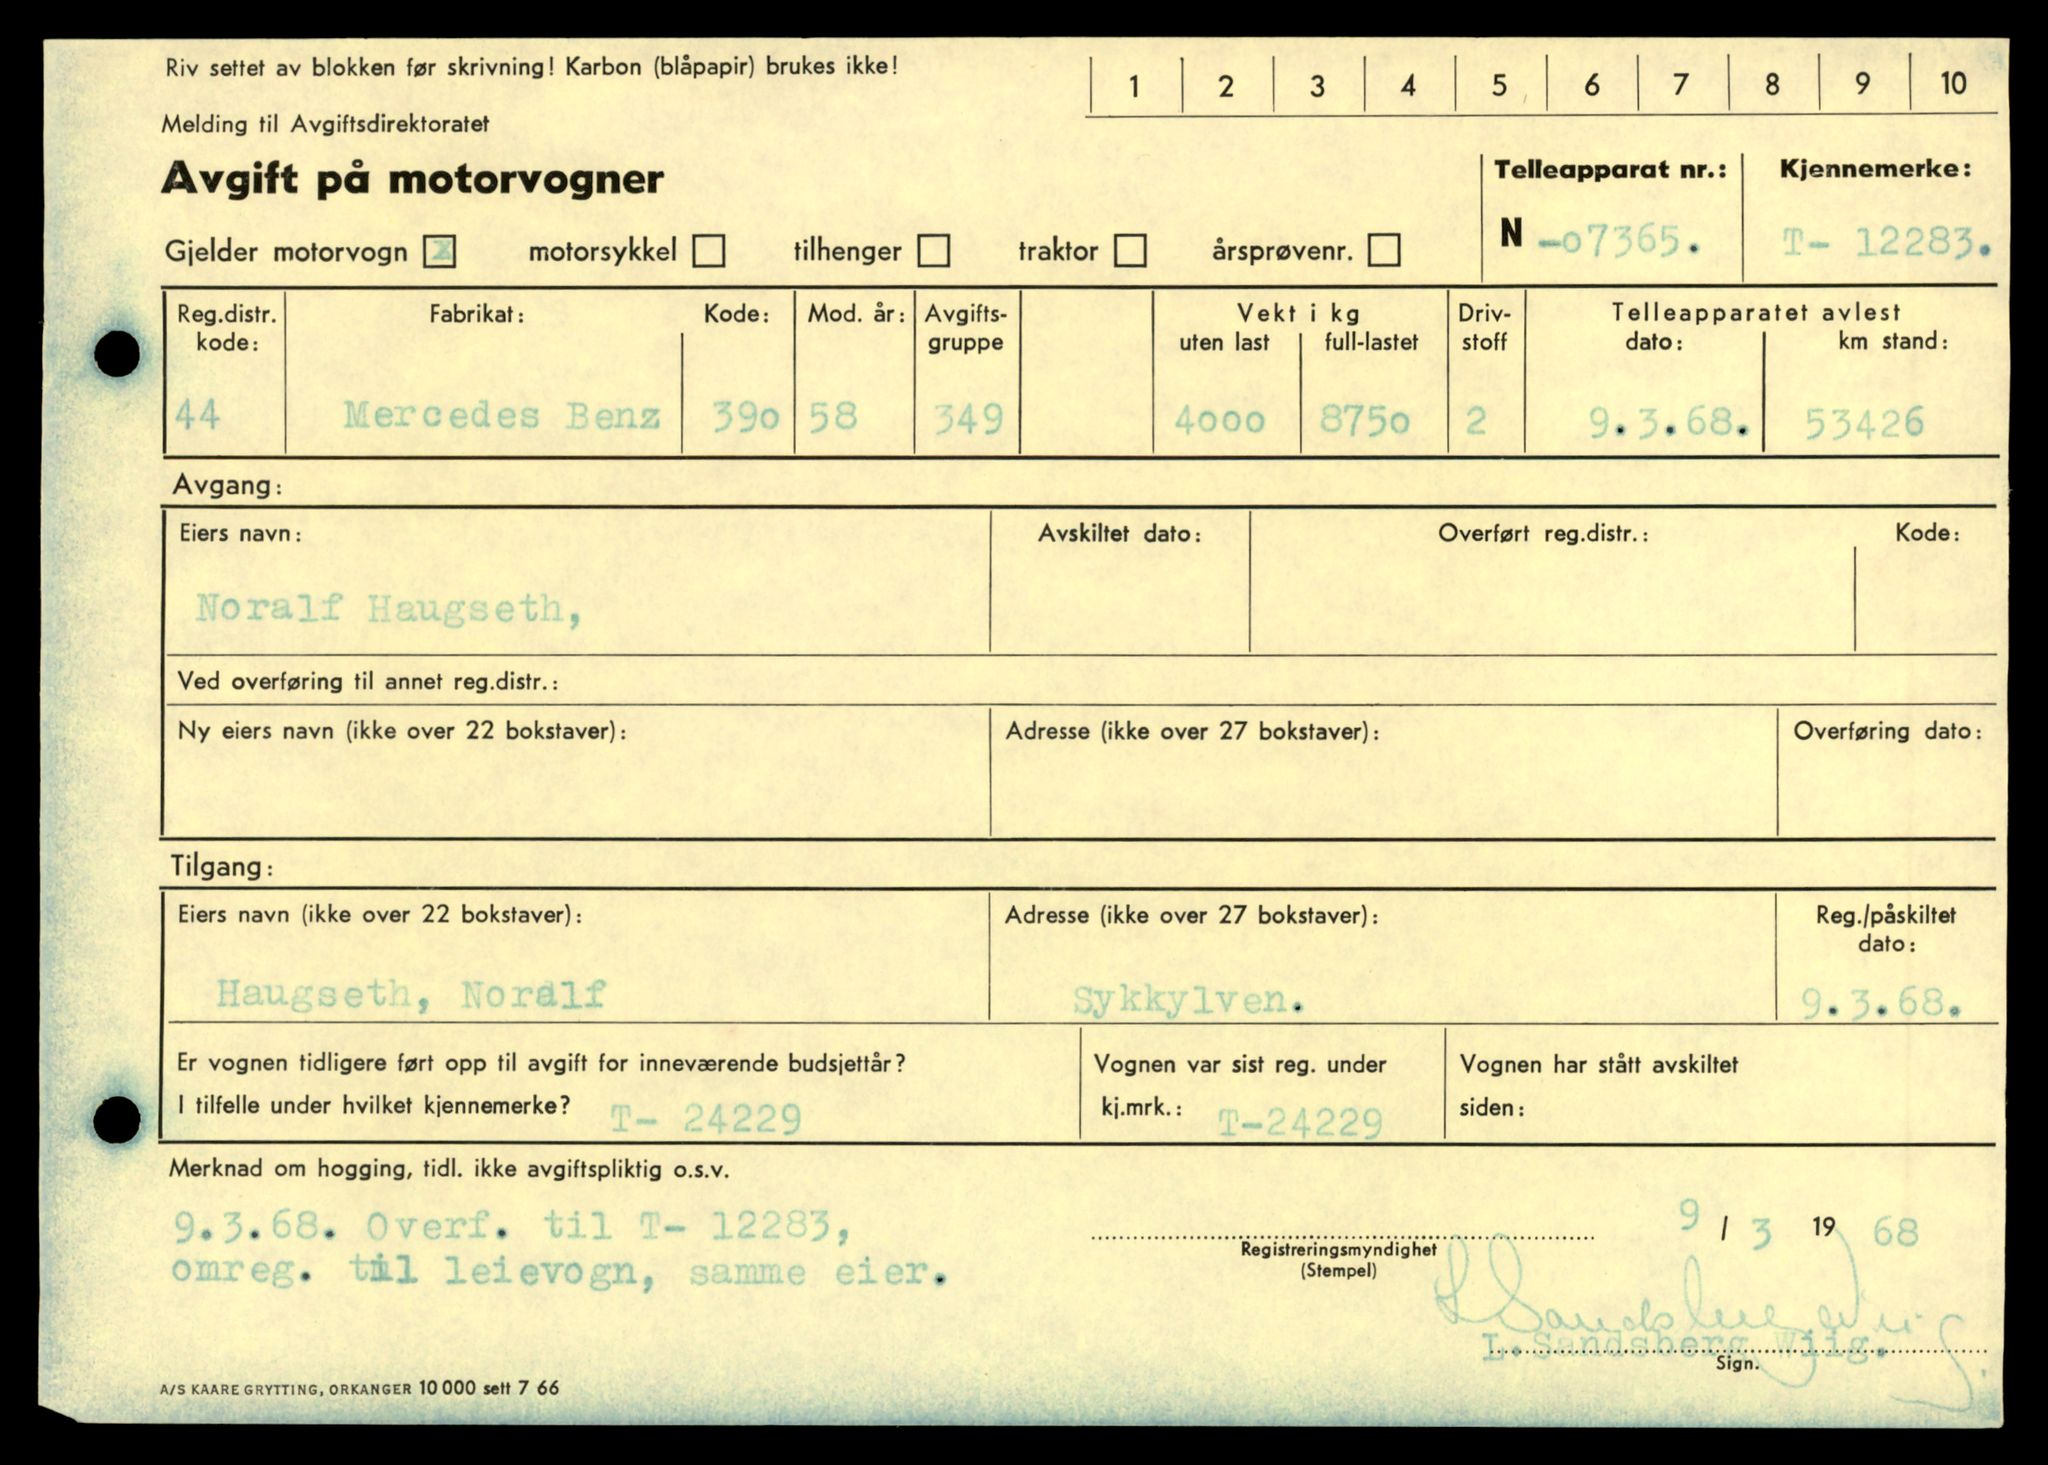 Riv settet av blokken før skrivning! Karbon (blåpapir) brukes ikke!
1 2 3 4 5 6 7 8 9 10
Melding til Avgiftsdirektoratet
Avgift på motorvogner
Telleapparat nr.: Kjennemerke:
N -07365. T- 12283.
Gjelder motorvogn X motorsykkel tilhenger traktor årsprøvenr.
Reg.distr. kode: Fabrikat: Kode: Mod. år: Avgifts-gruppe Vekt i kg uten last full-lastet Driv-stoff Telleapparatet avlest dato: km stand:
44 Mercedes Benz 390 58 349 4000 8750 2 9.3.68. 53426
Avgang:
Eiers navn: Avskiltet dato: Overført reg.distr.: Kode:
Noralf Haugseth,
Ved overføring til annet reg.distr.:
Ny eiers navn (ikke over 22 bokstaver): Adresse (ikke over 27 bokstaver): Overføring dato:
Tilgang:
Eiers navn (ikke over 22 bokstaver): Adresse (ikke over 27 bokstaver): Reg./påskiltet dato:
Haugseth, Noralf Sykkylven. 9.3.68.
Er vognen tidligere ført opp til avgift for inneværende budsjettår? Vognen var sist reg. under Vognen har stått avskiltet
I tilfelle under hvilket kjennemerke? T- 24229 kj.mrk.: T-24229 siden:
Merknad om hogging, tidl. ikke avgiftspliktig o.s.v.
9.3.68. Overf. til T- 12283,
omreg. til leievogn, samme eier.
9 / 3 19 68
Registreringsmyndighet
(Stempel)
L.Sandsberg Wiig.
Sign.
A/S KAARE GRYTTING, ORKANGER 10 000 sett 7 66